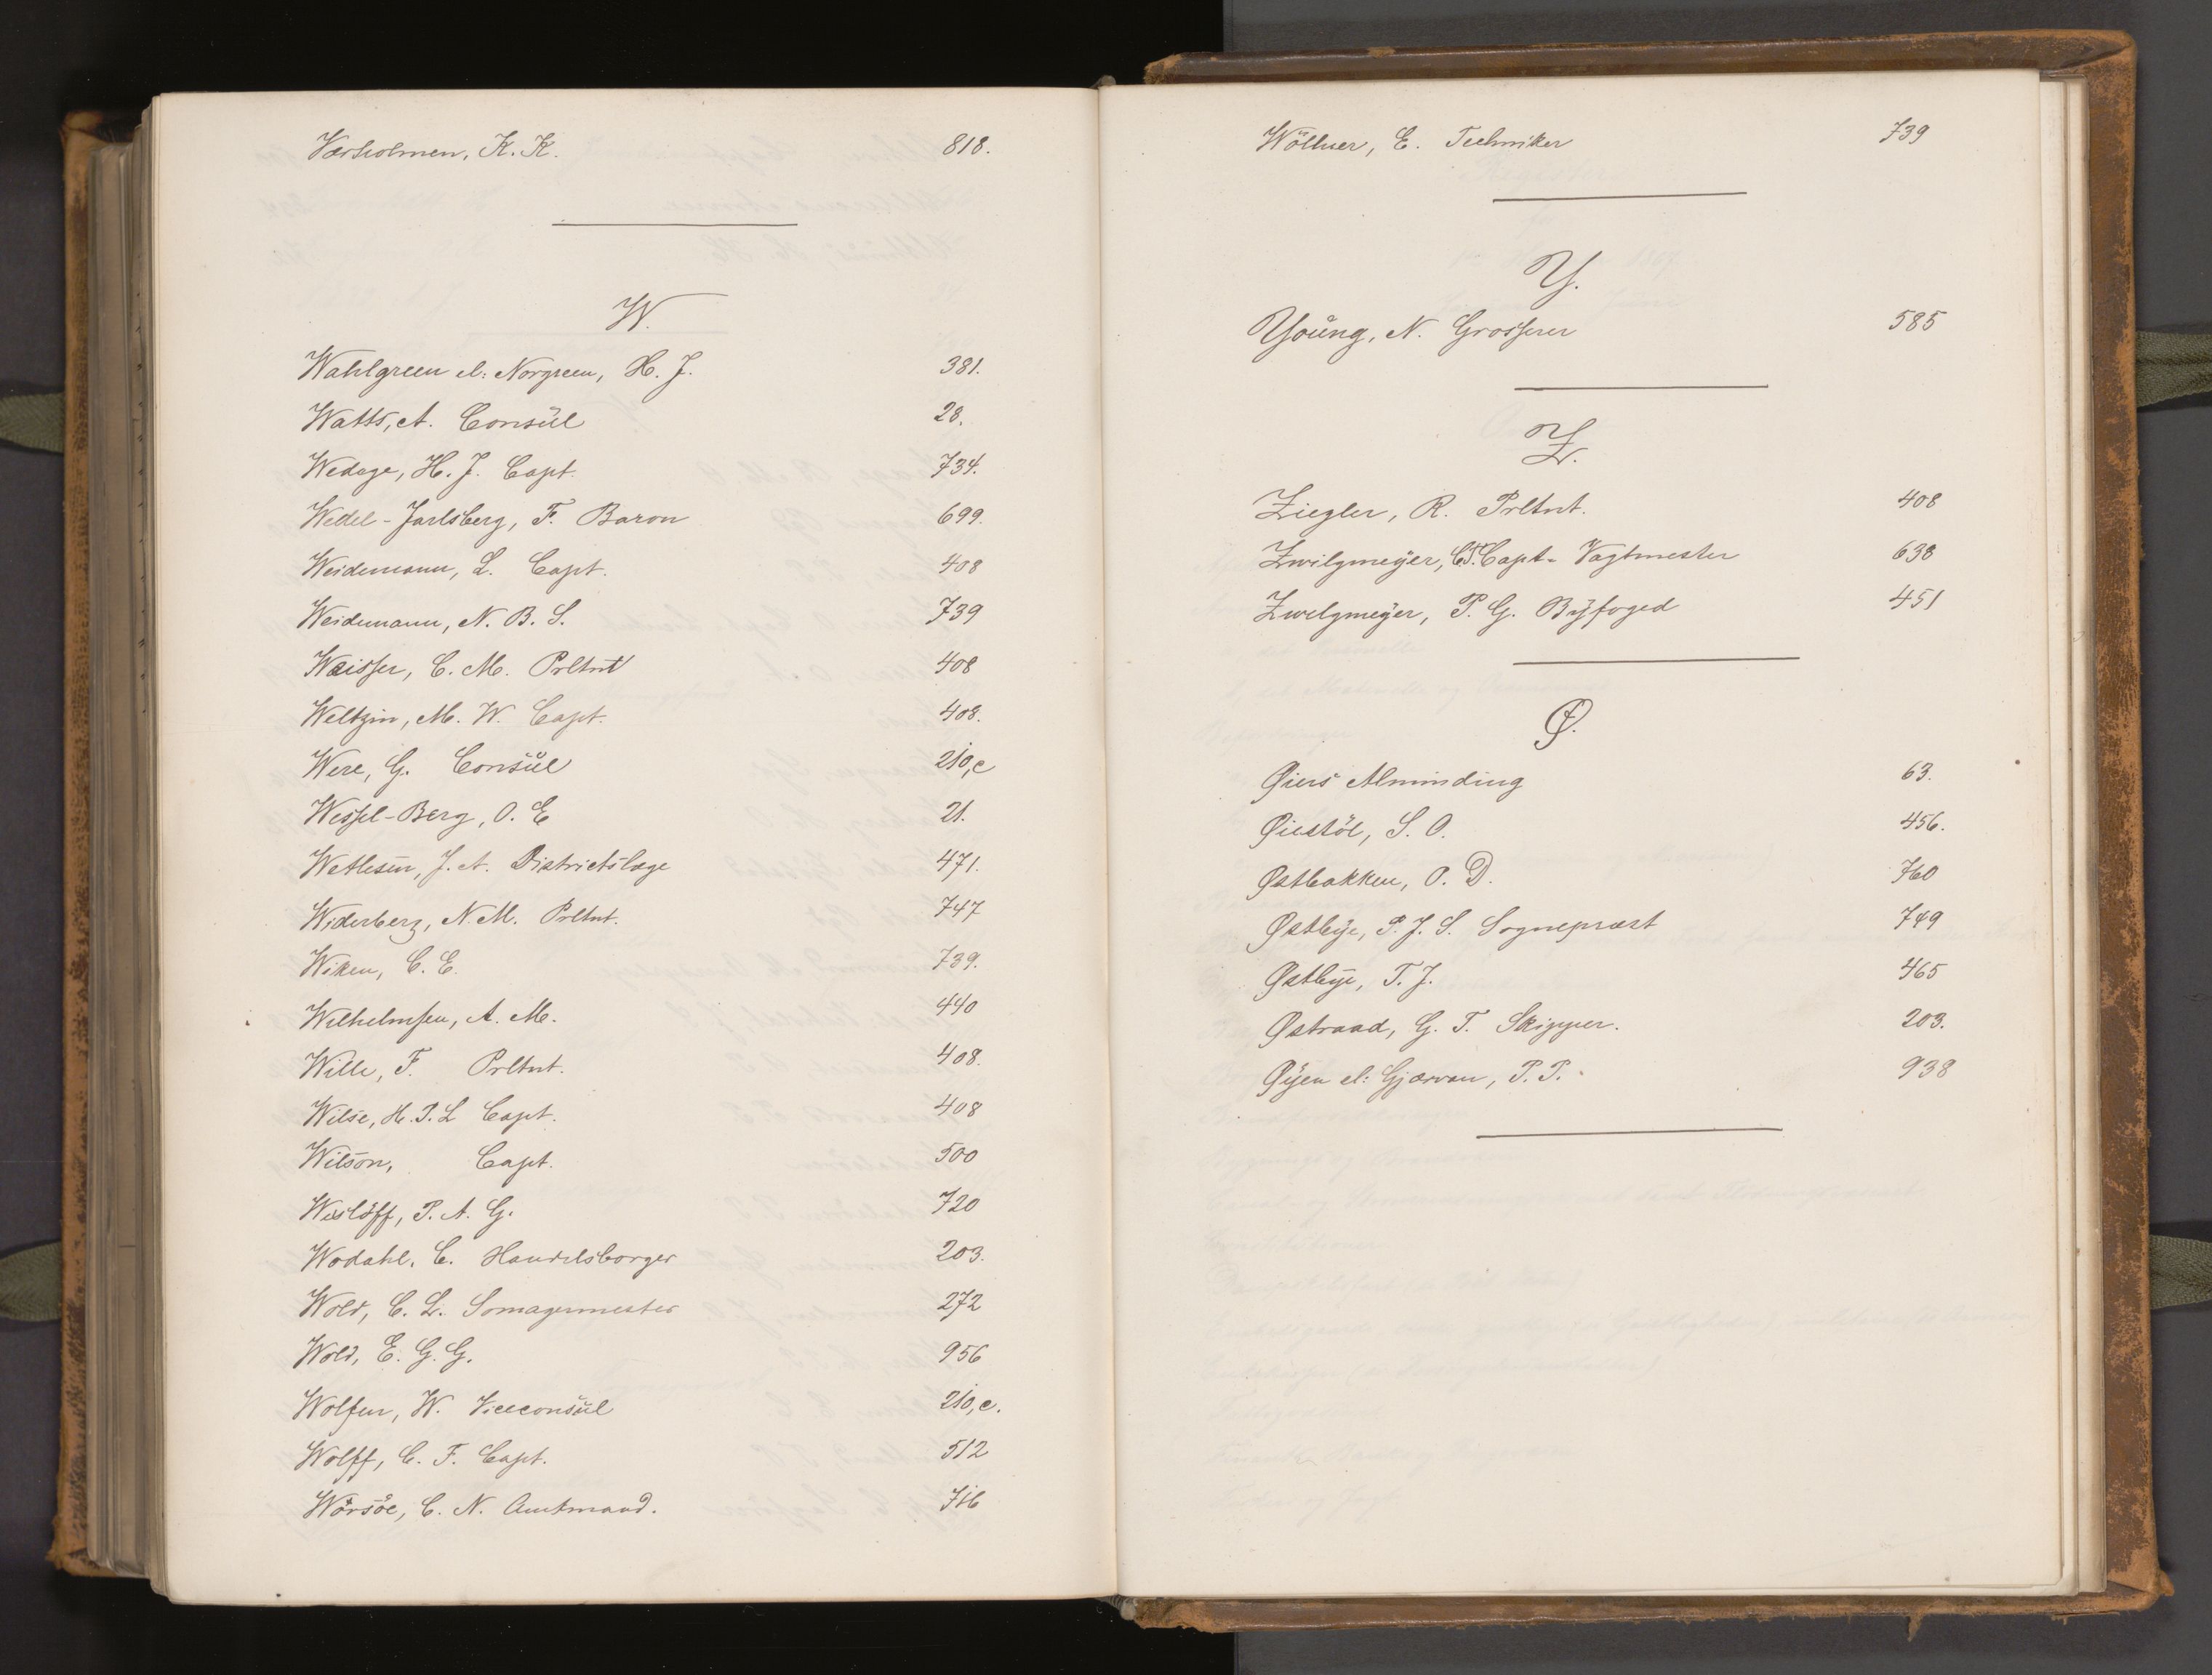 Værholmen, K. K. 818.
W.
Wahlgreen el: Norgreen, H. J. 381.
Watts, A. Consul 28.
Wedage, H. J. Capt. 734.
Wedel-Jarlsberg, F. Baron 699.
Weidemann, L. Capt. 408
Weidemann, N. B. S. 739
Weisser, C. M. Prltnt 408
Weltzin, M. W. Capt. 408.
Were, G. Consul 210,c
Wessel-Berg, O. E 21.
Wetlesen, J. A. Districtslæge 471.
Widerberg, N. M. Prltnt. 747
Wiken, C. E. 739.
Wilhelmsen, A. M. 440
Wille, F. Prltnt. 408.
Wilse, H. P. L Capt. 408
Wilson, Capt. 500
Wisløff, P. A. G. 720
Wodahl, C. Handelsborger 203.
Wold, C. L. Somagermester 272
Wold, E. G. G. 956
Wolfen, W. Viceconsul 210,c.
Wolff, C. F. Capt. 512
Worsøe, C. N. Amtmand. 716
Wöllner, E. Techniker 739
Y.
Young, N. Grosserer 585
Z.
Ziegler, R. Prltnt. 408
Zwilgmeyer, Capt. Vagtmester 638
Zwilgmeyer, P. G. Byfoged 451
Ø.
Øiers Alminding 63.
Øiestöl, S. O. 456.
Østbakken, O. D. 760
Østbye, P. J. S. Sognepræst 749
Østbye, T. J. 465
Østraad, G. T. Skipper. 203.
Øyen el: Gjærvan, P. P. 938